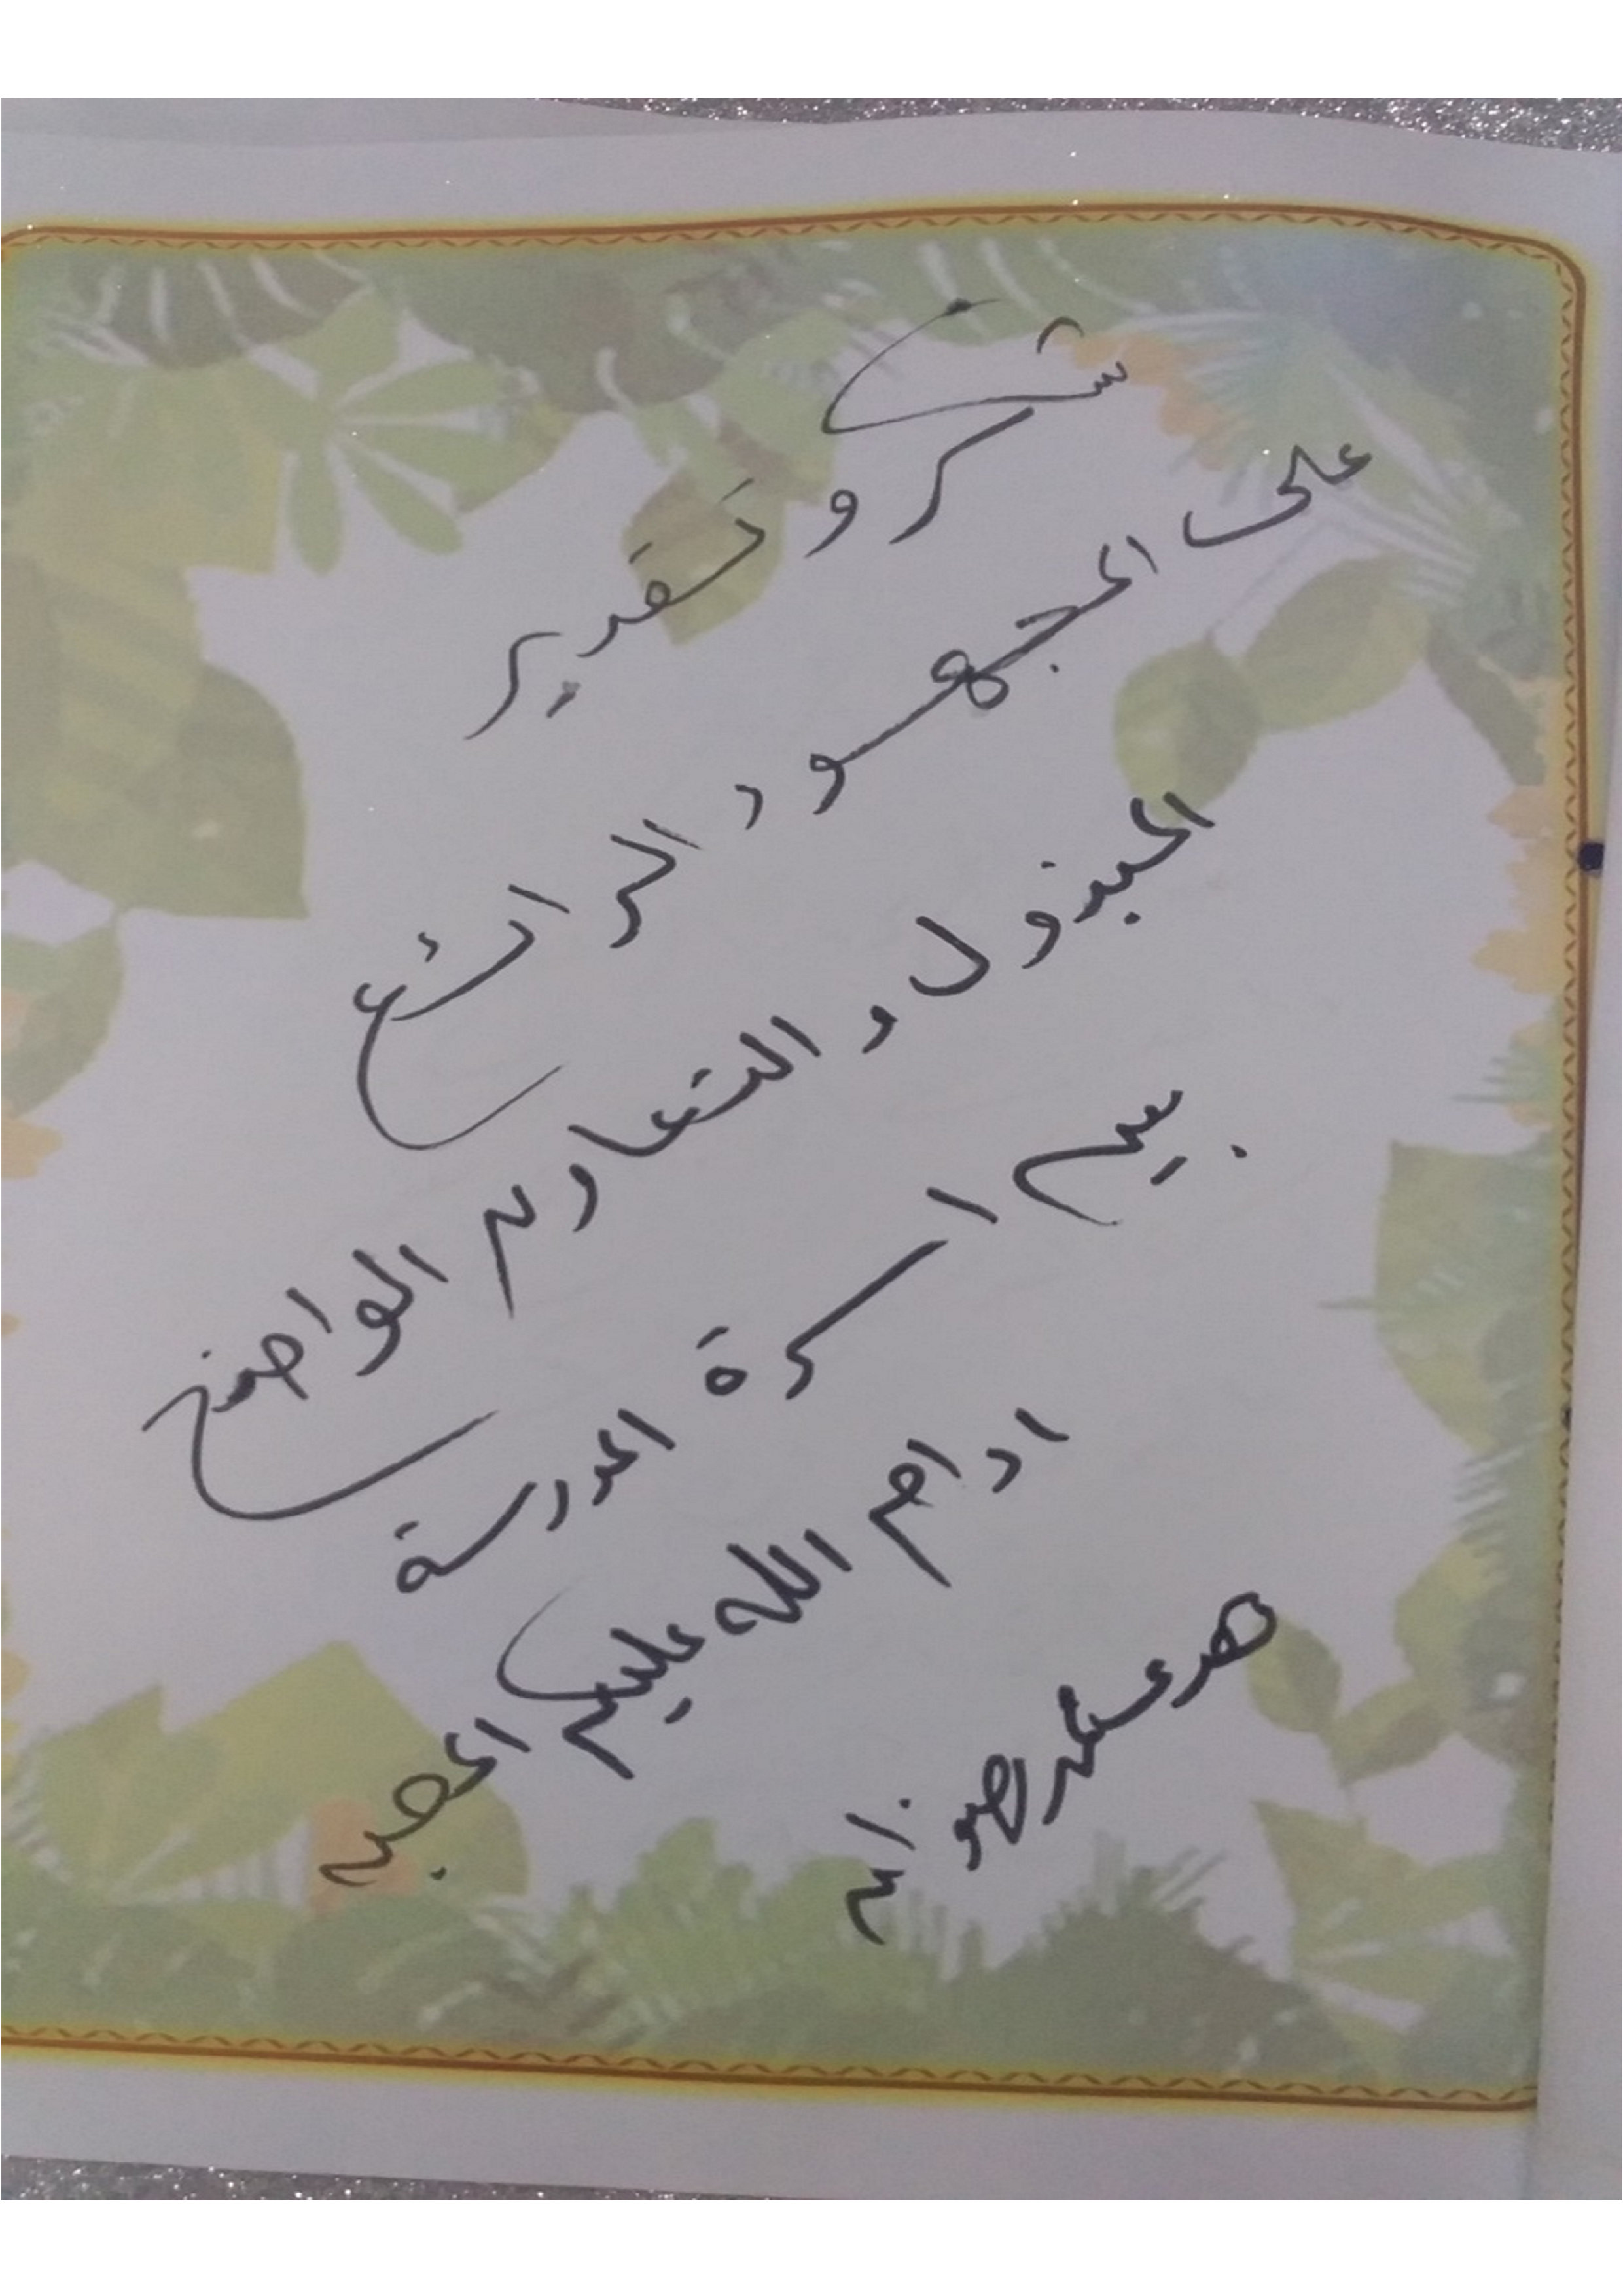 شكر و تقدير
على المجهود الرائع
المبذول و التعاون الواضح
بين اسرة المدرسة
ادام الله عليكم المحبه